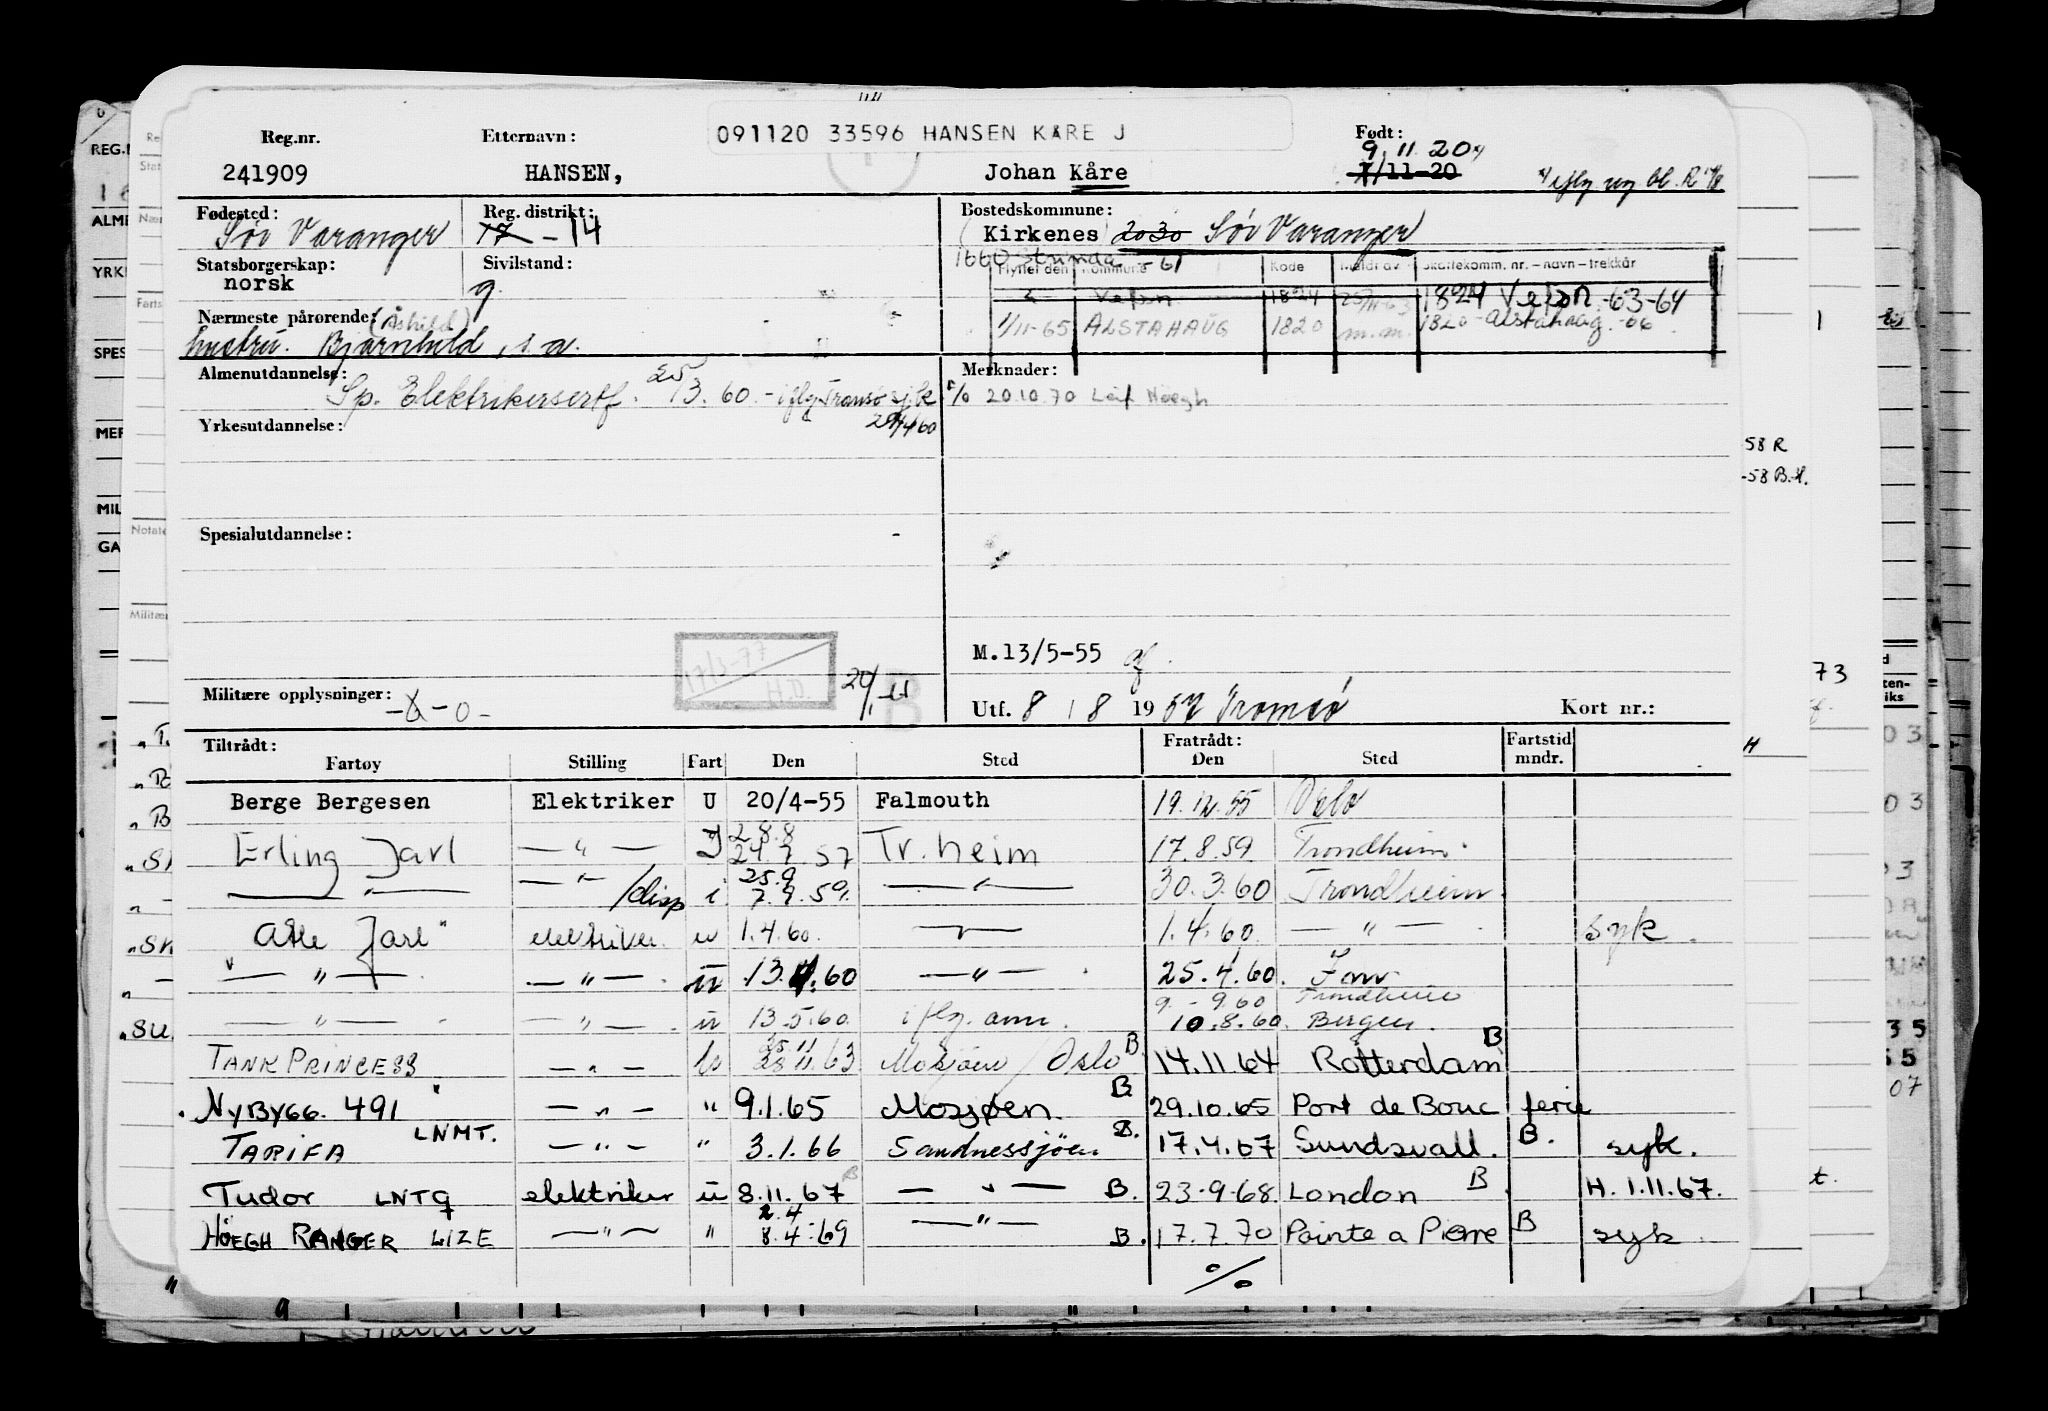 Reg.nr. Etternavn: 091120 33596 HANSEN KÅRE J Født:
9.11.20
241909 HANSEN, Johan Kåre 7/11-20
Fødested: Reg. distrikt: Bostedskommune:
Sør Varanger 17 - 14 Kirkenes 2030 Sør Varanger
Statsborgerskap: Sivilstand: 1660 Strinda -61
norsk g. Flyttet den Kommune Kode Meldt av Skattekomm. nr. – navn – trekkår
Vefsn 1824 1824 Vefsn -63-64
Nærmeste pårørende: (Åshild)
hustru. Bjørnhild, s.a. 1/11-65 ALSTAHAUG 1820 m.m. 1820 Alstahaug -66
Almenutdannelse: Merknader:
Sp. Elektrikersertf. 25/3.60. - iflg Tromsø sj.k 29/4 60 % 20.10.70 Leif Höegh
Yrkesutdannelse:
Spesialutdannelse:
M.13/5-55
17/3-77
H.D.
B
Militære opplysninger: -0- Utf. 8 / 8 1957 Tromsø Kort nr.:
Tiltrådt: Fratrådt: Fartstid
Fartøy Stilling Fart Den Sted Den Sted mndr.
Berge Bergesen Elektriker U 20/4-55 Falmouth 19.12.55 Oslo
2.8.8
Erling Jarl — " — I 24.7.57 Tr.heim 17.8.59 Trondheim
25.9
— " — — " — /disp i 7.9.59. — " — 30.3.60 Trondheim
Atle Jarl elektriker u 1.4.60. — " — 1.4.60 — " — syk.
— " — — " — u 13.4.60 — " — 25.4.60.
9.-9.60 Trondheim
— " — — " — u 13.5.60 iflg. ann. 10.8.60. Bergen.
25 11
TANK PRINCESS — " — 28 11.63 Mosjøen / Oslo B 14.11.64 Rotterdam B
NyBygg. 491 — " — " 9.1.65 Mosjøen. B 29.10.65 Port de Bouc ferie
TARIFA LNMT. — " — " 3.1.66 Sandnessjøen B. 17.4.67 Sundsvall. B. syk.
Tudor LNTQ elektriker u 8.11.67 B — " — B. 23-9-68. London B H. 1.11.67.
2.4
HÖEGH RANGER LIZE — " — " 8.4.69 — " — B. 17.7.70 Pointe a Pierre B syk.
%